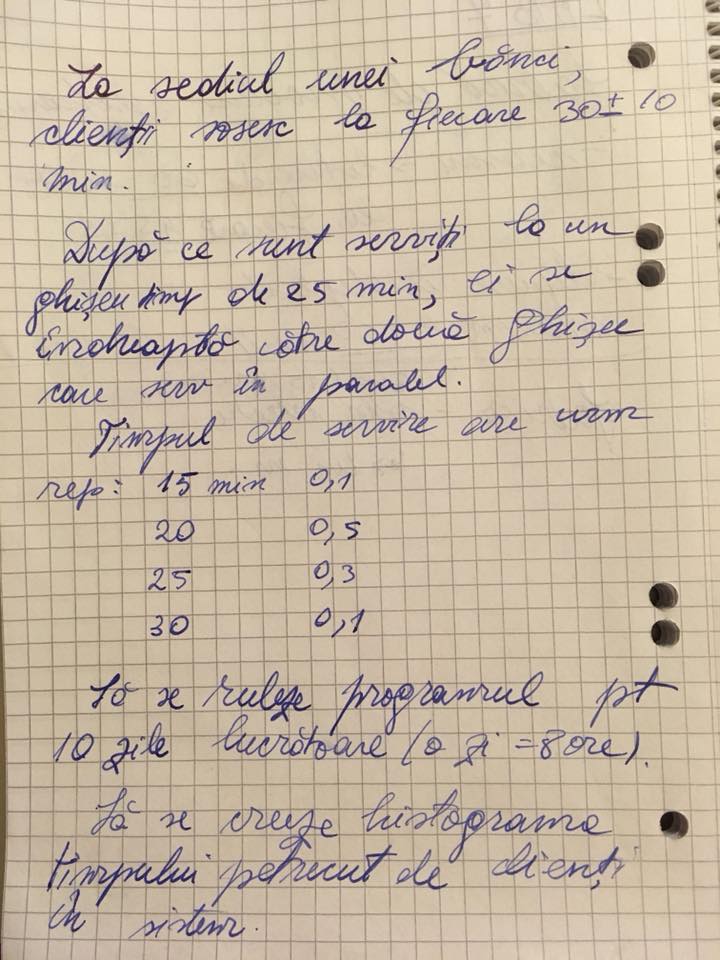 La sediul unei bănci,
clienții sosesc la fiecare 30 ± 10
min.
După ce sunt serviți la un
ghișeu timp de 25 min, ei se
îndreaptă către două ghișee
care serv în paralel.
Timpul de servire are urm
rep: 15 min 0,1
20 0,5
25 0,3
30 0,1
Să se ruleze programul pt
10 zile lucrătoare (o zi = 8 ore).
Să se creeze histograma
timpului petrecut de clienți
în sistem.